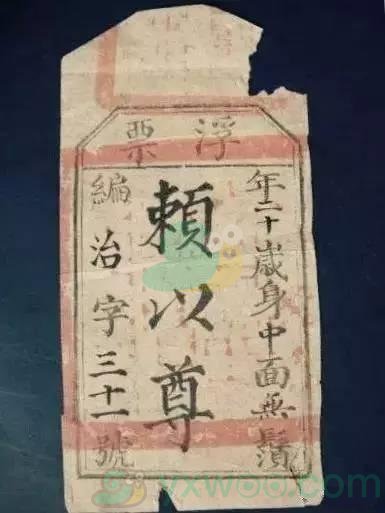 浮票
年二十歲身中面無鬚
賴以尊
編治字三十一號
yxwoo.com